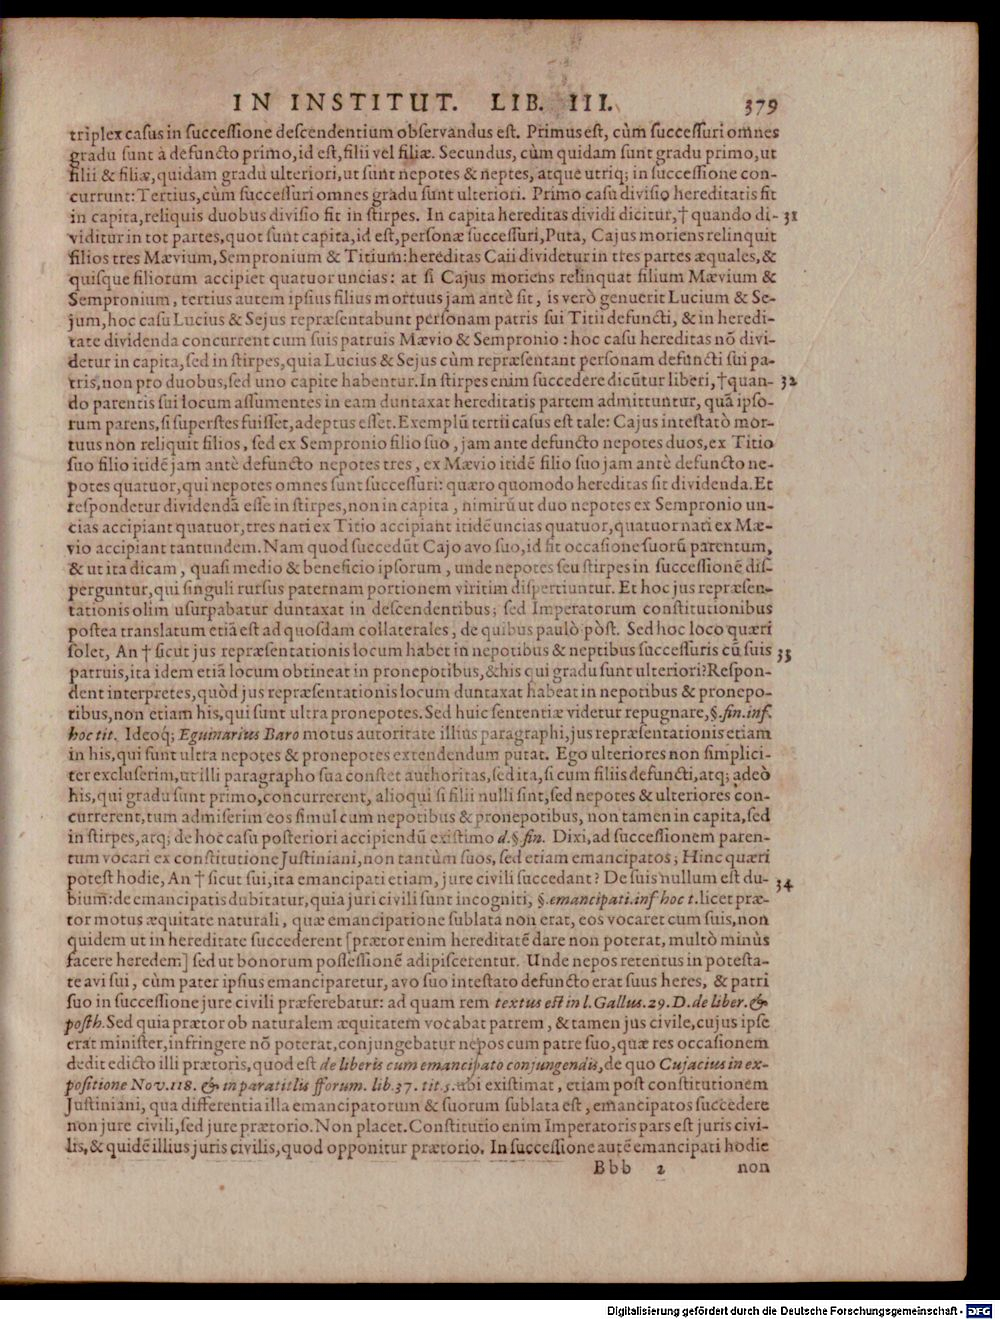 IN INSTITUT. LIB. III. 379
triplex casus in successione descendentium observandus est. Primus est, cùm successuri omnes
gradu sunt à defuncto primo, id est, filii vel filiæ. Secundus, cùm quidam sunt gradu primo, ut
filii & filiæ, quidam gradu ulteriori, ut sunt nepotes & neptes, atque utriq; in successione con-
currunt: Tertius, cùm successuri omnes gradu sunt ulteriori. Primo casu divisio hereditatis fit
in capita, reliquis duobus divisio fit in stirpes. In capita hereditas dividi dicitur, † quando di- 31
viditur in tot partes, quot sunt capita, id est, personæ successuri, Puta, Cajus moriens relinquit
filios tres Mævium, Sempronium & Titium: hereditas Caii dividetur in tres partes æquales, &
quisque filiorum accipiet quatuor uncias: at si Cajus moriens relinquat filium Mævium &
Sempronium, tertius autem ipsius filius mortuus jam antè sit, is verò genuerit Lucium & Se-
jum, hoc casu Lucius & Sejus repræsentabunt personam patris sui Titii defuncti, & in heredi-
tate dividenda concurrent cum suis patruis Mævio & Sempronio: hoc casu hereditas nõ divi-
detur in capita, sed in stirpes, quia Lucius & Sejus cùm repræsentant personam defuncti sui pa-
tris, non pro duobus, sed uno capite habentur. In stirpes enim succedere dicũtur liberi, † quan- 32
do parentis sui locum assumentes in eam duntaxat hereditatis partem admittuntur, quã ipso-
rum parens, si superstes fuisset, adeptus esset. Exemplũ tertii casus est tale: Cajus intestatò mor-
tuus non reliquit filios, sed ex Sempronio filio suo, jam ante defuncto nepotes duos, ex Titio
suo filio itidẽ jam antè defuncto nepotes tres, ex Mævio itidẽ filio suo jam antè defuncto ne-
potes quatuor, qui nepotes omnes sunt successuri: quæro quomodo hereditas sit dividenda. Et
respondetur dividendã esse in stirpes, non in capita, nimirũ ut duo nepotes ex Sempronio un-
cias accipiant quatuor, tres nati ex Titio accipiant itidẽ uncias quatuor, quatuor nati ex Mæ-
vio accipiant tantundem. Nam quod succedũt Cajo avo suo, id fit occasione suorũ parentum,
& ut ita dicam, quasi medio & beneficio ipsorum, unde nepotes seu stirpes in successionẽ dis-
perguntur, qui singuli rursus paternam portionem viritim dispertiuntur. Et hoc jus repræsen-
tationis olim usurpabatur duntaxat in descendentibus; sed Imperatorum constitutionibus
postea translatum etiã est ad quosdam collaterales, de quibus paulò pòst. Sed hoc loco quæri
solet, An † sicut jus repræsentationis locum habet in nepotibus & neptibus successuris cũ suis 33
patruis, ita idem etiã locum obtineat in pronepotibus, & his qui gradu sunt ulteriori? Respon-
dent interpretes, quòd jus repræsentationis locum duntaxat habeat in nepotibus & pronepo-
tibus, non etiam his, qui sunt ultra pronepotes. Sed huic sententiæ videtur repugnare, §. fin. inf.
hoc tit. Ideoq; Eguinarius Baro motus autoritate illius paragraphi, jus repræsentationis etiam
in his, qui sunt ultra nepotes & pronepotes extendendum putat. Ego ulteriores non simplici-
ter excluserim, ut illi paragrapho sua constet authoritas, sed ita, si cum filiis defuncti, atq; adeò
his, qui gradu sunt primo, concurrerent, alioqui si filii nulli sint, sed nepotes & ulteriores con-
currerent, tum admiserim eos simul cum nepotibus & pronepotibus, non tamen in capita, sed
in stirpes, atq; de hoc casu posteriori accipiendũ existimo d. §. fin. Dixi, ad successionem paren-
tum vocari ex constitutione Justiniani, non tantùm suos, sed etiam emancipatos; Hinc quæri
potest hodie, An † sicut sui, ita emancipati etiam, jure civili succedant? De suis nullum est du- 34
bium: de emancipatis dubitatur, quia juri civili sunt incogniti, §. emancipati. inf hoc t. licet præ-
tor motus æquitate naturali, quæ emancipatione sublata non erat, eos vocaret cum suis, non
quidem ut in hereditate succederent [prætor enim hereditatẽ dare non poterat, multò minùs
facere heredem] sed ut bonorum possessionẽ adipiscerentur. Unde nepos retentus in potesta-
te avi sui, cùm pater ipsius emanciparetur, avo suo intestato defuncto erat suus heres, & patri
suo in successione jure civili præferebatur: ad quam rem textus est in l. Gallus. 29. D. de liber. &
posth. Sed quia prætor ob naturalem æquitatem vocabat patrem, & tamen jus civile, cujus ipse
erat minister, infringere nõ poterat, conjungebatur nepos cum patre suo, quæ res occasionem
dedit edicto illi prætoris, quod est de liberis cum emancipato conjungendis, de quo Cujacius in ex-
positione Nov. 118. & in paratitlis fforum. lib. 37. tit. 5. ubi existimat, etiam post constitutionem
Justiniani, qua differentia illa emancipatorum & suorum sublata est, emancipatos succedere
non jure civili, sed jure prætorio. Non placet. Constitutio enim Imperatoris pars est juris civi-
lis, & quidẽ illius juris civilis, quod opponitur prætorio. In successione autẽ emancipati hodie
Bbb 2 non
Digitalisierung gefördert durch die Deutsche Forschungsgemeinschaft - DFG